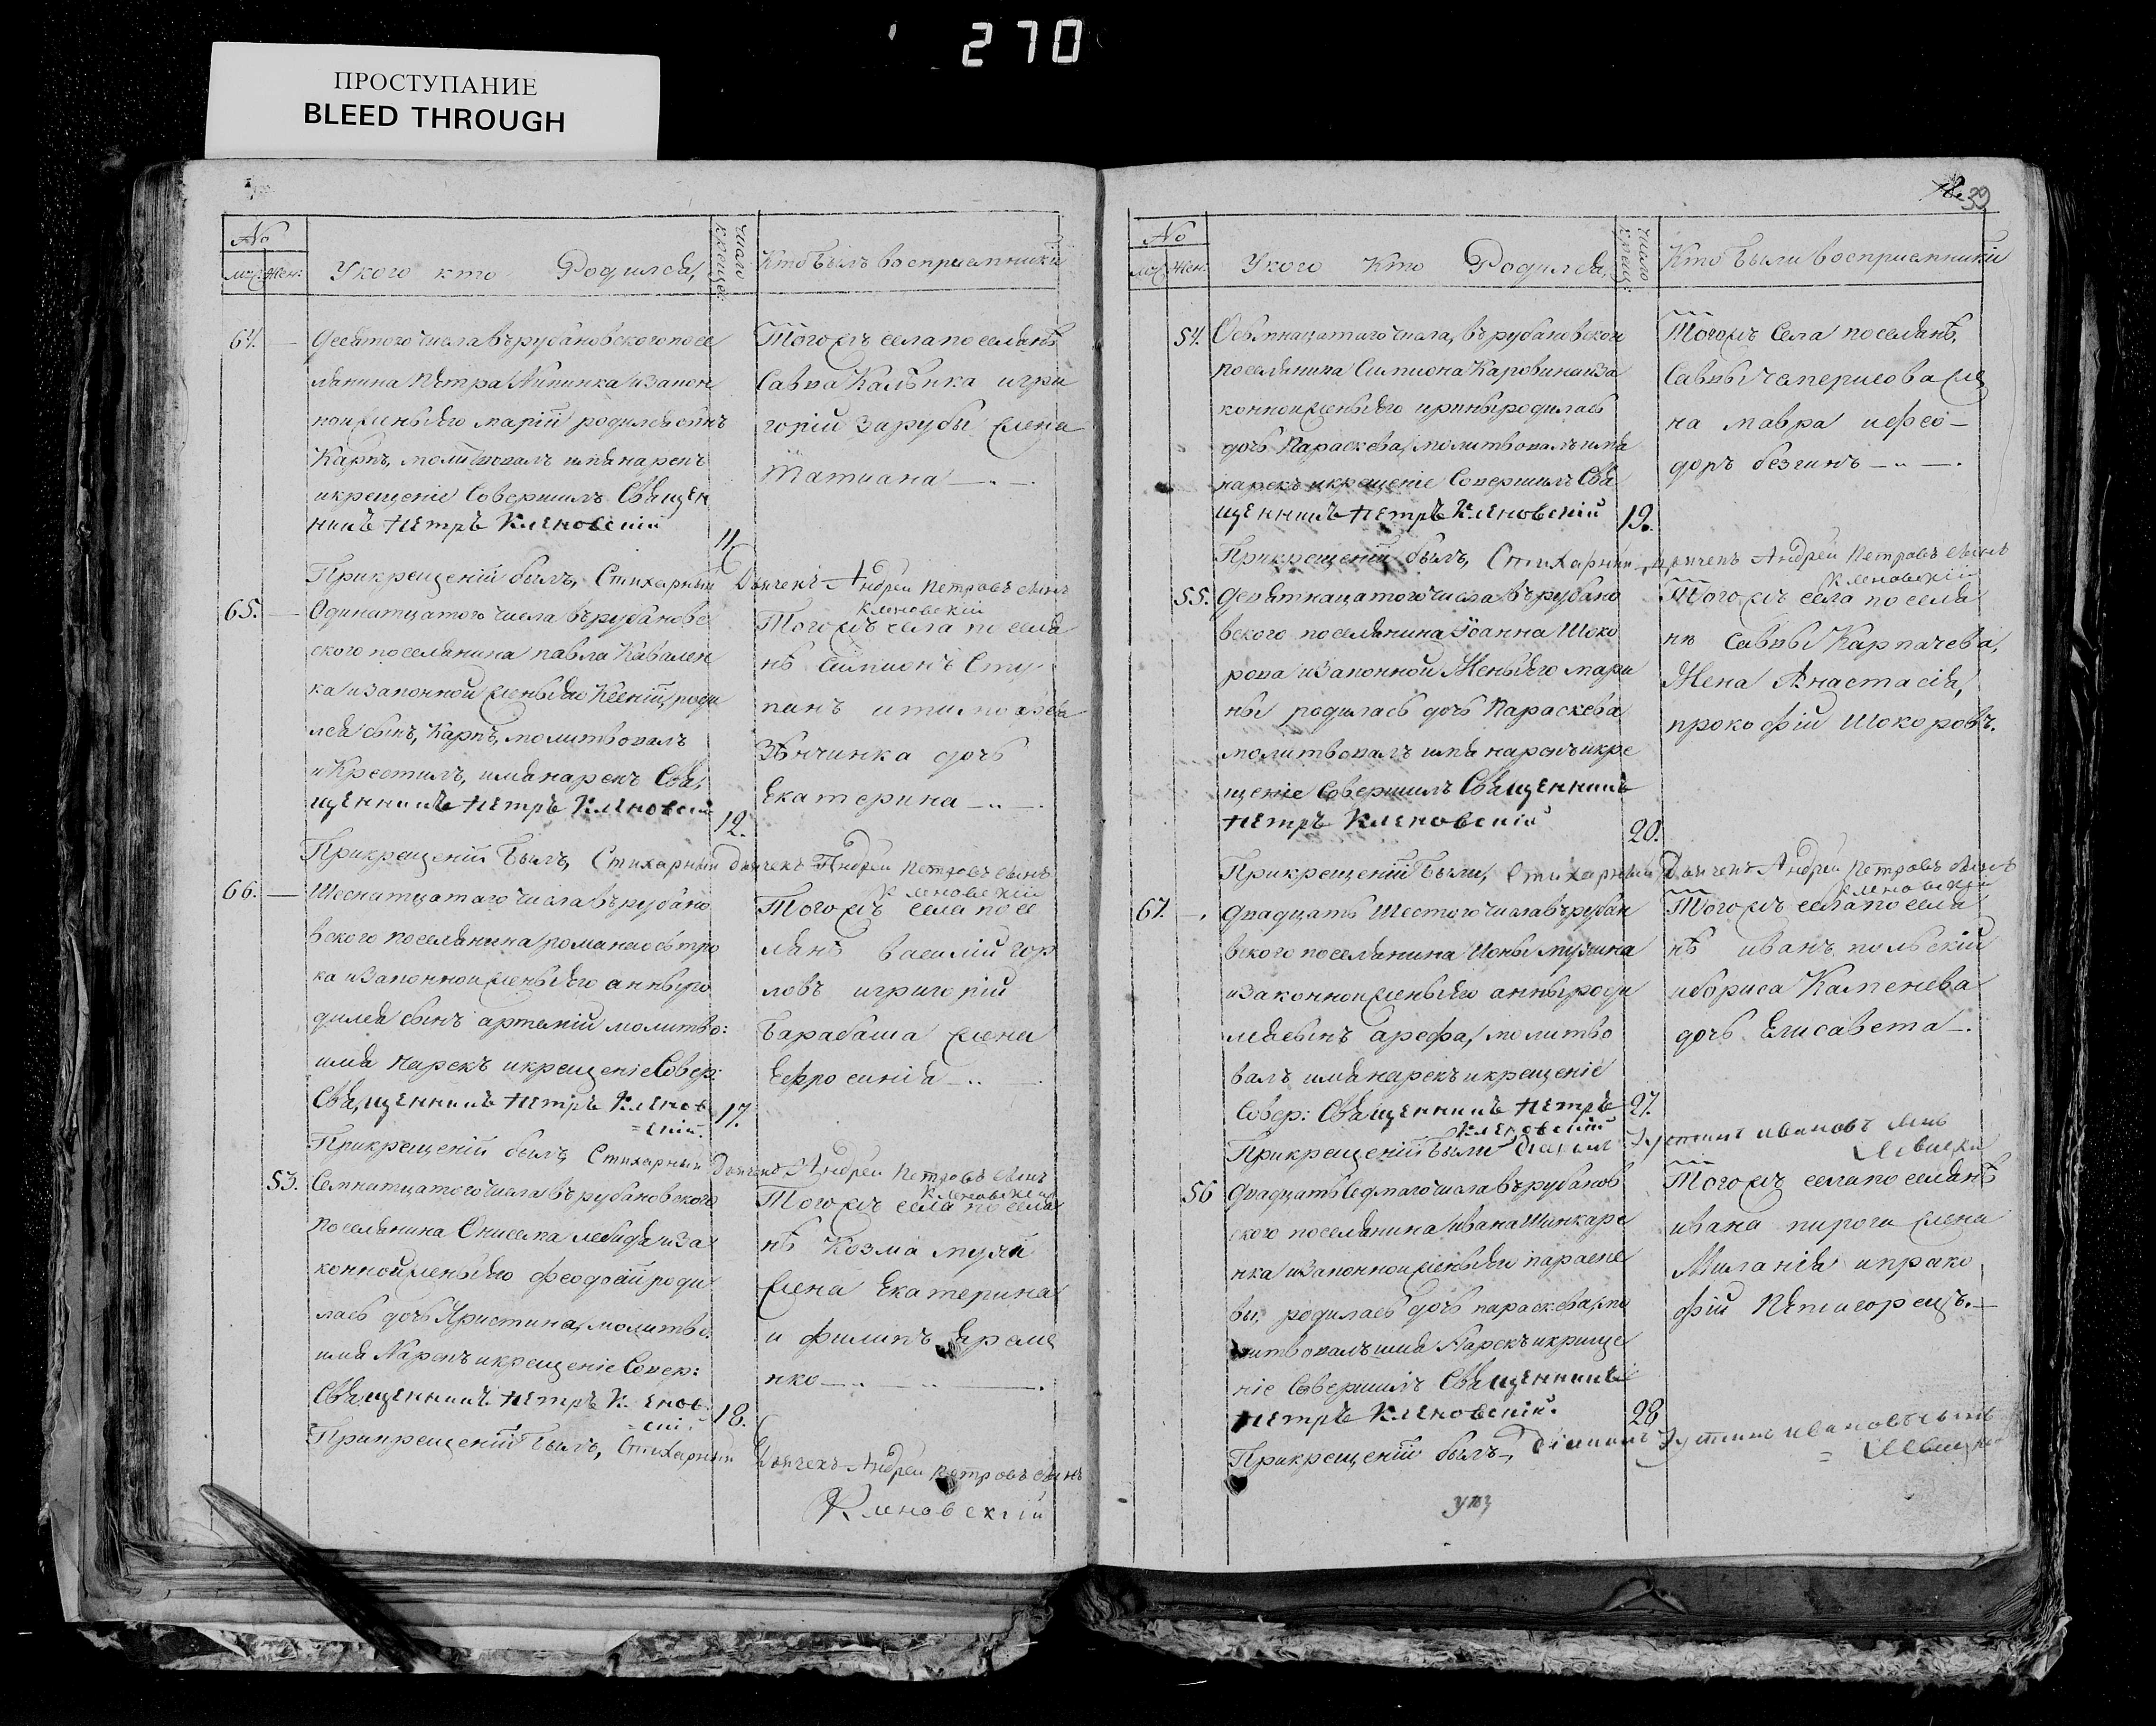 270
ПРОСТУПАНИЕ
BLEED THROUGH
№
муж жен:
У кого кто Родился,
число крещен:
Кто былъ восприемники
64. —
Десятого числа в рубановского посе
лянина Петра Липинка и закон
ной жены его Марїи родился сынъ
Карпъ, молитвовалъ имя нарекъ
и крещенїе совершилъ Священ
никъ Петръ Кленовскїй
11.
Тогожъ села поселянѣ
Савва Калѣнка и гри
горїи Зарубы жена
Татиана —..—
При крещенїи былъ, Стихарный Дьячекъ Андрей Петровъ сынъ
Кленовскїй
65. —
Одинатцатого числа в рубановс
ского поселянина павла Кавален
ка и законной жены его Ксенїи, роди
лся сынъ, Карпъ, молитвовалъ
и Крестилъ, имя нарекъ Свя
щенникъ Петръ Кленовскїй
12.
Тогожъ села поселя
нѣ Симионъ Сту
панъ и тимофея
Зѣнчинка дочь
Екатерина —..—
При крещенїи былъ, Стихарный Дьячекъ Андрей Петровъ сынъ
Кленовскїй
66. —
Шеснатцатаго числа в рубано
вского поселянина романа остро
ка и законной жены его анны ро
дился сынъ артемїй молитво:
имя нарекъ и крещенїе Совер:
Священникъ Петръ Кленов
=скїй.
17.
Тогожъ села посе
лянѣ василїй гор
ловъ и григорїй
Барабаша жена
Ефросинїя —..—
При крещенїи былъ, Стихарный Дьячекъ Андрей Петровъ сынъ
Кленовскїй
53.
Семнатцатого числа в рубановского
поселянина Онисема лебидя и за
конной жены его феодосїи роди
лась дочь Христина, молитво:
имя Нарекъ и крещенїе Совер:
Священникъ Петръ Кленов
=скїй.
18.
Тогожъ села поселя
нѣ Козма
жена Екатерина
и филипъ Ереме
нко —.. .. —.
При крещенїи былъ, Стихарный Дьячекъ Андрей Петровъ сынъ
Кленовскїй
39
№
муж жен.
У кого кто Родился,
число крещ:
Кто были восприемники
54.
Осьмнацатаго числа, в рубановского
поселянина Симиона Каровина и за
конной жены его ирины родилась
дочь Параскева, молитвовалъ имя
нарекъ и крещенїе Совершилъ Свя
щенникъ Петръ Кленовскїй
19.
Тогожъ Села поселянѣ,
Саввы чеперисова же
на мавра и фео—
доръ безгинъ —..—.
При крещенїи былъ, Стихарный Дьячекъ Андрей Петровъ сынъ
Кленовскїй
55.
Девятнацатого числа в рубано
вского поселянина Иоанна Шоко
рова и законной Жены его мари
ны родилась дочь Параскева
молитвовалъ имя нарекъ и кре
щенїе Совершилъ Священникъ
Петръ Кленовскїй
20.
Тогожъ села поселя
нѣ Саввы Карпачева,
Жена Анастасїя,
прокофїй Шокоровъ.
При крещенїи были, Стихарный Дьячекъ Андрей Петровъ сынъ
Кленовскїй
67. —.
Двадцать Шестого числа в рубан
вского поселянина Ионы музина
и законной жены его анны роди
лся сынъ арефа, молитво
валъ имя нарекъ и крещенїе
Совер: Священникъ Петръ
Кленовскїй
27.
Тогожъ села поселя
нѣ иванъ польскїй
и бориса Каменева
дочь Елисавета —.
При крещенїи были Иустинъ ивановъ сынъ
56
Двадцать Седмаго числа в рубанов
ского поселянина ивана Шинкаре
нка и законной жены его параске
вы, родилась дочь параскева, мо
литвовалъ имя Нарекъ и креще
нїе Совершилъ Священникъ
Петръ Кленовскїй.
28
Тогожъ села поселянѣ
ивана пирога жена
Миланїя и прако
фїй Петигорецъ. —
При крещенїи былъ, дїаконъ Иустинъ ивановъ сынъ